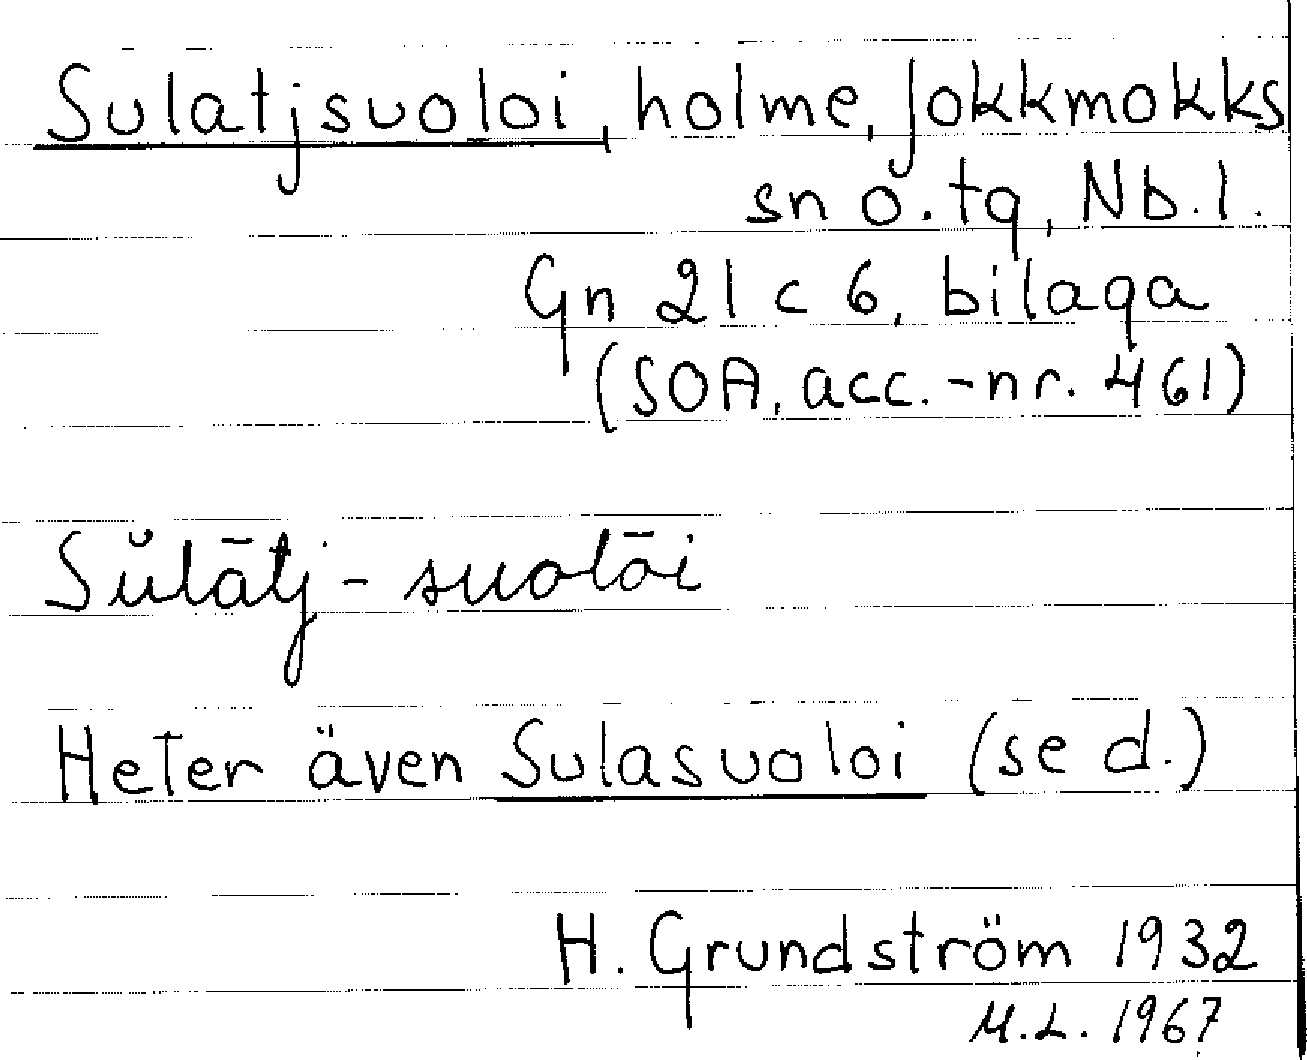 Sulatjsuoloi, holme, Jokkmokks
sn o. tg, Nb. l.
Gn 21 c 6, bilaga
(SOA, acc.-nr. 461)
Sŭlātj-suolōi
Heter även Sulasuoloi (se d.)
H. Grundström 1932
M.L. 1967